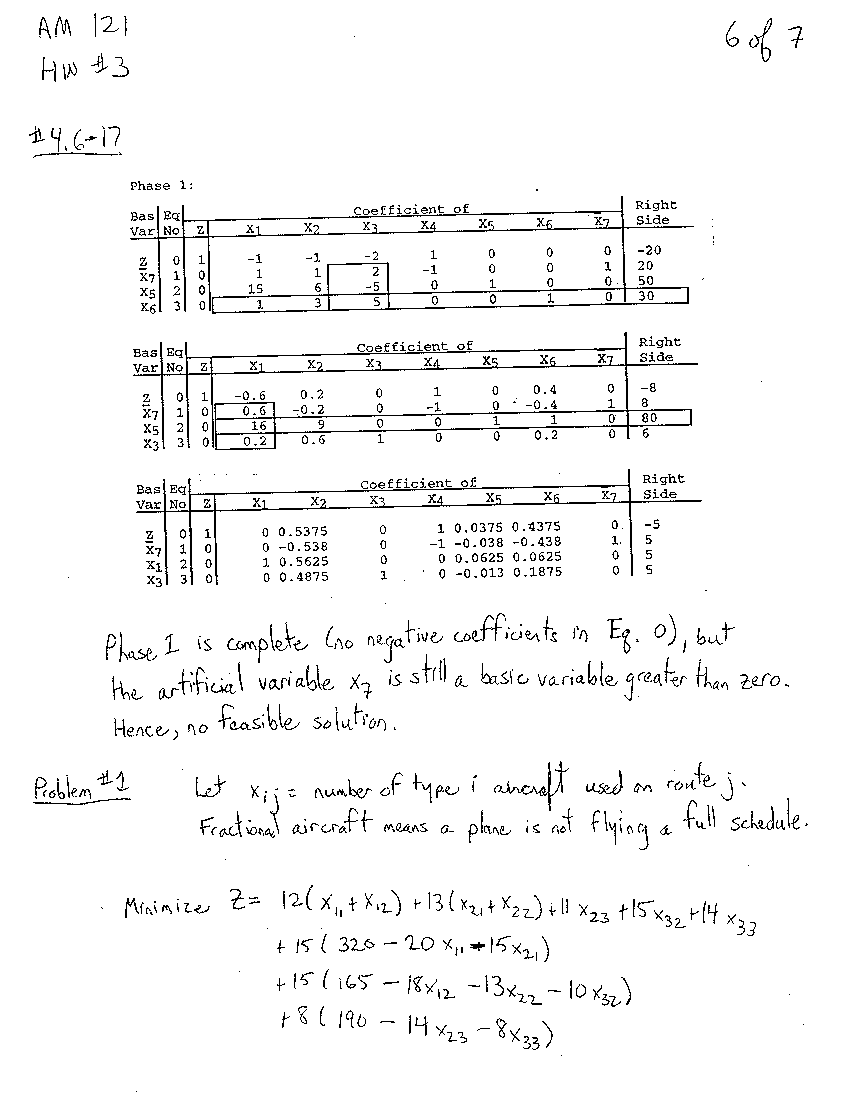 AM 121
6 of 7
HW #3
#4.6-17
Phase 1:
Bas Eq Coefficient of Right
Var No Z X1 X2 X3 X4 X5 X6 X7 Side
Z 0 1 -1 -1 -2 1 0 0 0 -20
X7 1 0 1 1 2 -1 0 0 1 20
X5 2 0 15 6 -5 0 1 0 0 50
X6 3 0 1 3 5 0 0 1 0 30
Bas Eq Coefficient of Right
Var No Z X1 X2 X3 X4 X5 X6 X7 Side
Z 0 1 -0.6 0.2 0 1 0 0.4 0 -8
X7 1 0 0.6 -0.2 0 -1 0 -0.4 1 8
X5 2 0 16 9 0 0 1 1 0 80
X3 3 0 0.2 0.6 1 0 0 0.2 0 6
Bas Eq Coefficient of Right
Var No Z X1 X2 X3 X4 X5 X6 X7 Side
Z 0 1 0 0.5375 0 1 0.0375 0.4375 0 -5
X7 1 0 0 -0.538 0 -1 -0.038 -0.438 1 5
X1 2 0 1 0.5625 0 0 0.0625 0.0625 0 5
X3 3 0 0 0.4875 1 0 -0.013 0.1875 0 5
Phase 1 is complete (no negative coefficients in Eq. 0), but
the artificial variable x7 is still a basic variable greater than zero.
Hence, no feasible solution.
Problem #1 Let xij = number of type i aircraft used on route j.
Fractional aircraft means a plane is not flying a full schedule.
Minimize Z = 12(x11 + x12) + 13(x21 + x22) + 11 x23 + 15x32 + 14 x33
+ 15 ( 320 - 20 x11 - 15x21)
+ 15 ( 165 - 18x12 - 13x22 - 10 x32)
+ 8 ( 190 - 14 x23 - 8x33)